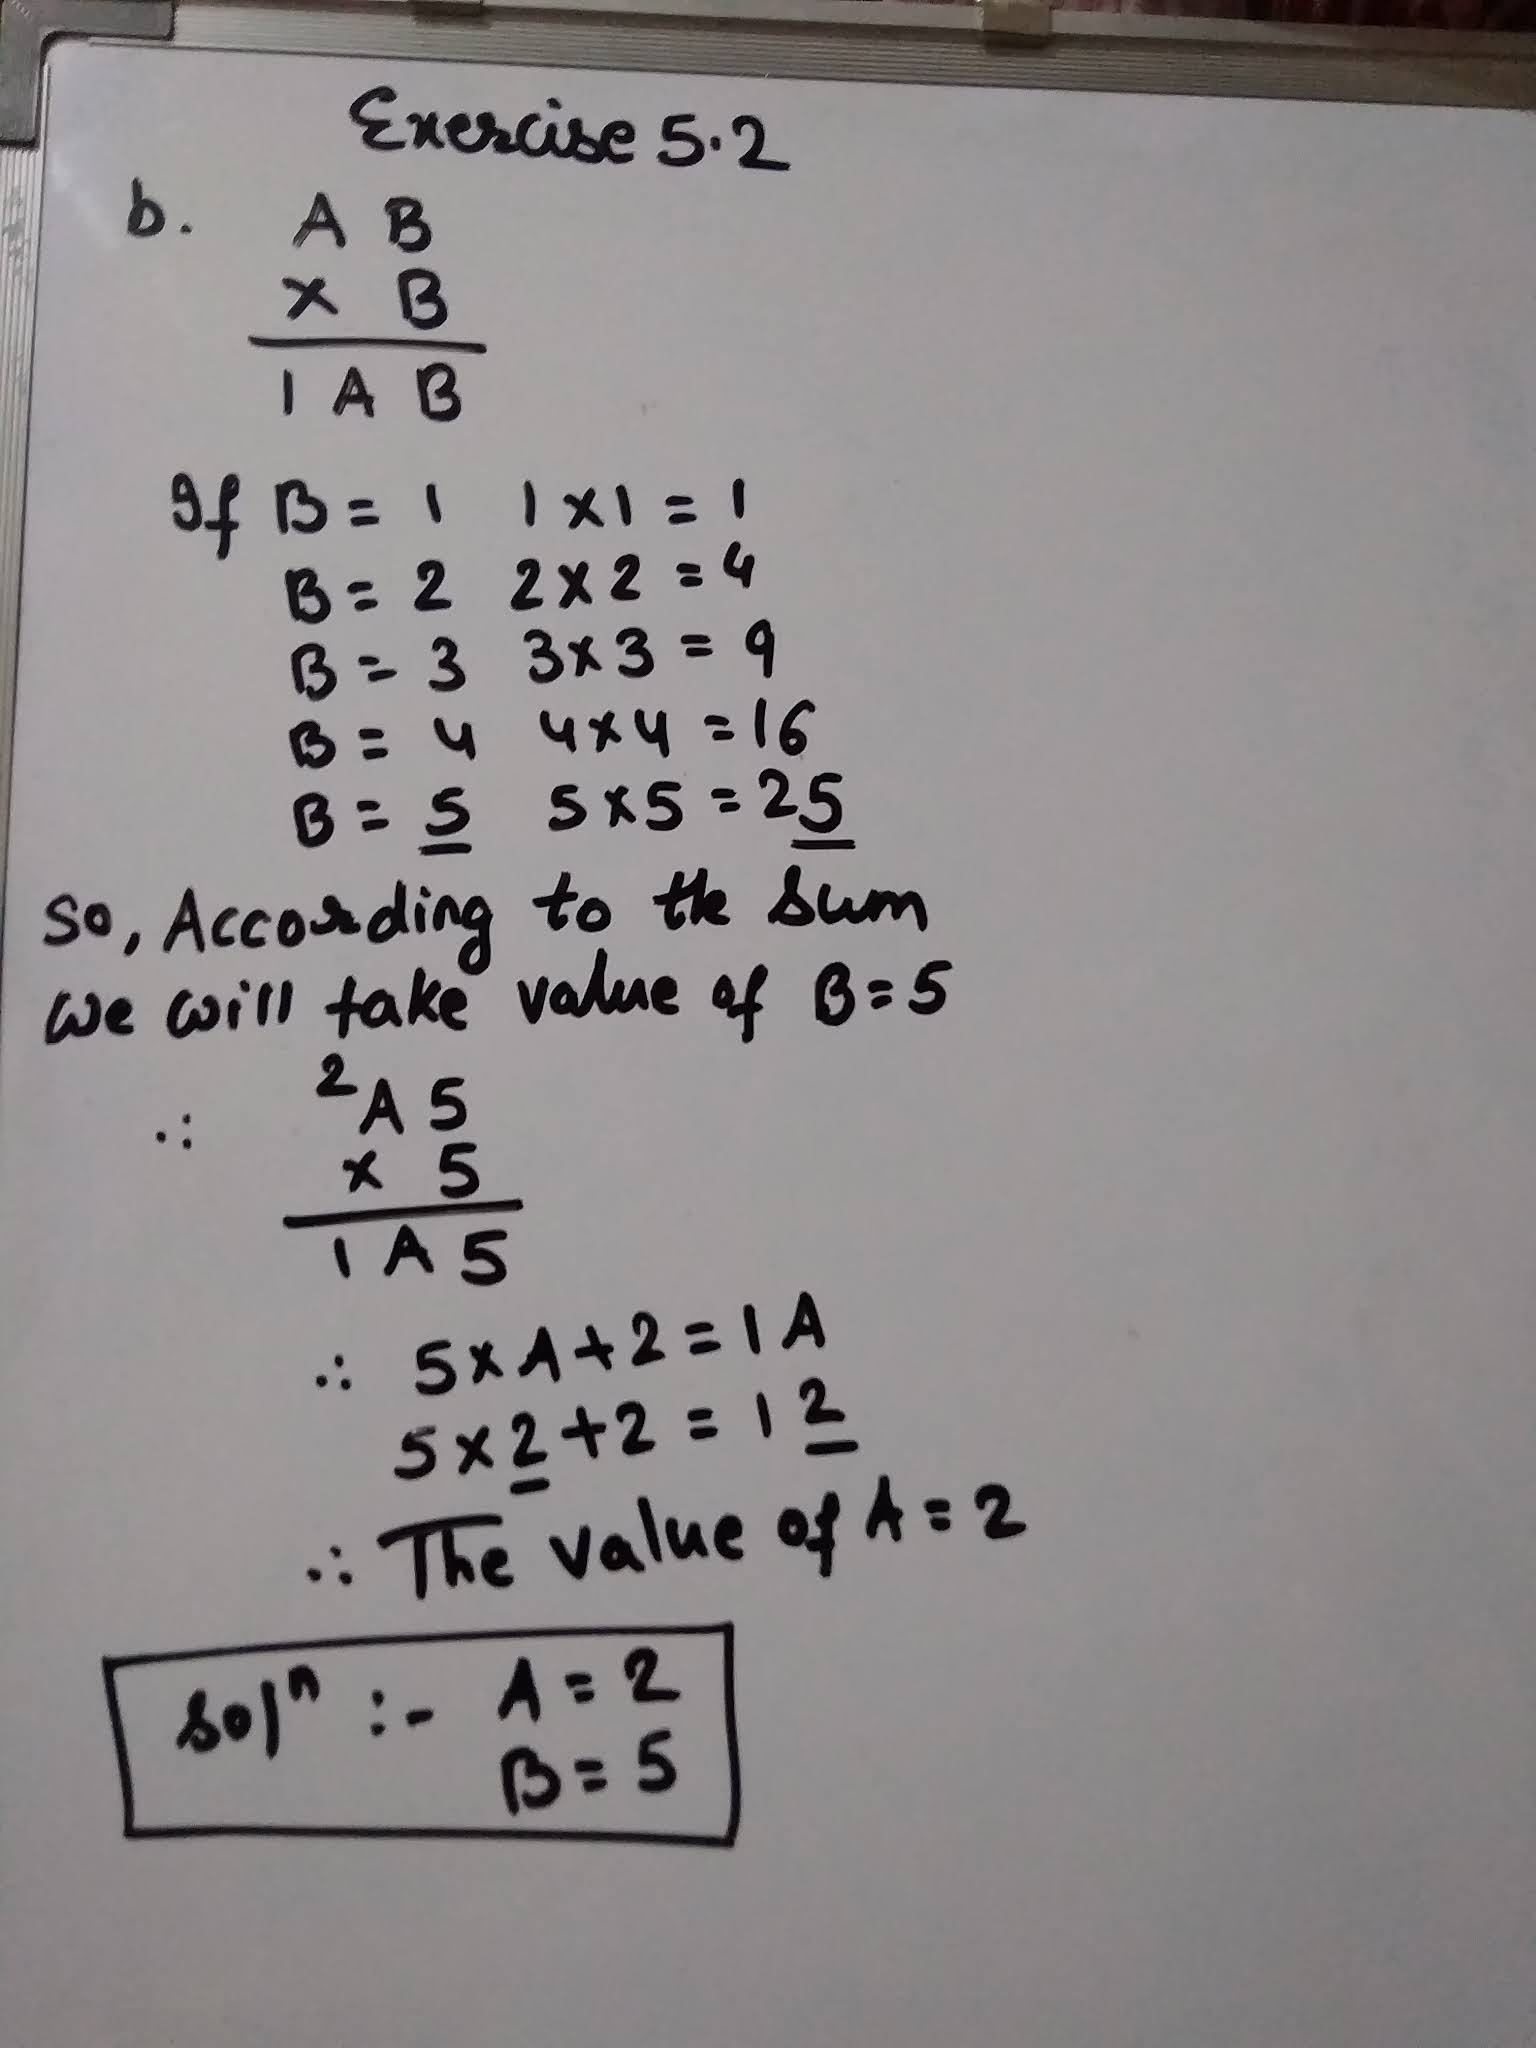 Exercise 5.2
b. A B
x B
1 A B
If B = 1 1 x 1 = 1
B = 2 2 x 2 = 4
B = 3 3 x 3 = 9
B = 4 4 x 4 = 16
B = 5 5 x 5 = 25
So, According to the sum
we will take value of B = 5
∴ ²A 5
x 5
1 A 5
∴ 5 x A + 2 = 1 A
5 x 2 + 2 = 1 2
∴ The value of A = 2
Solⁿ :- A = 2
B = 5